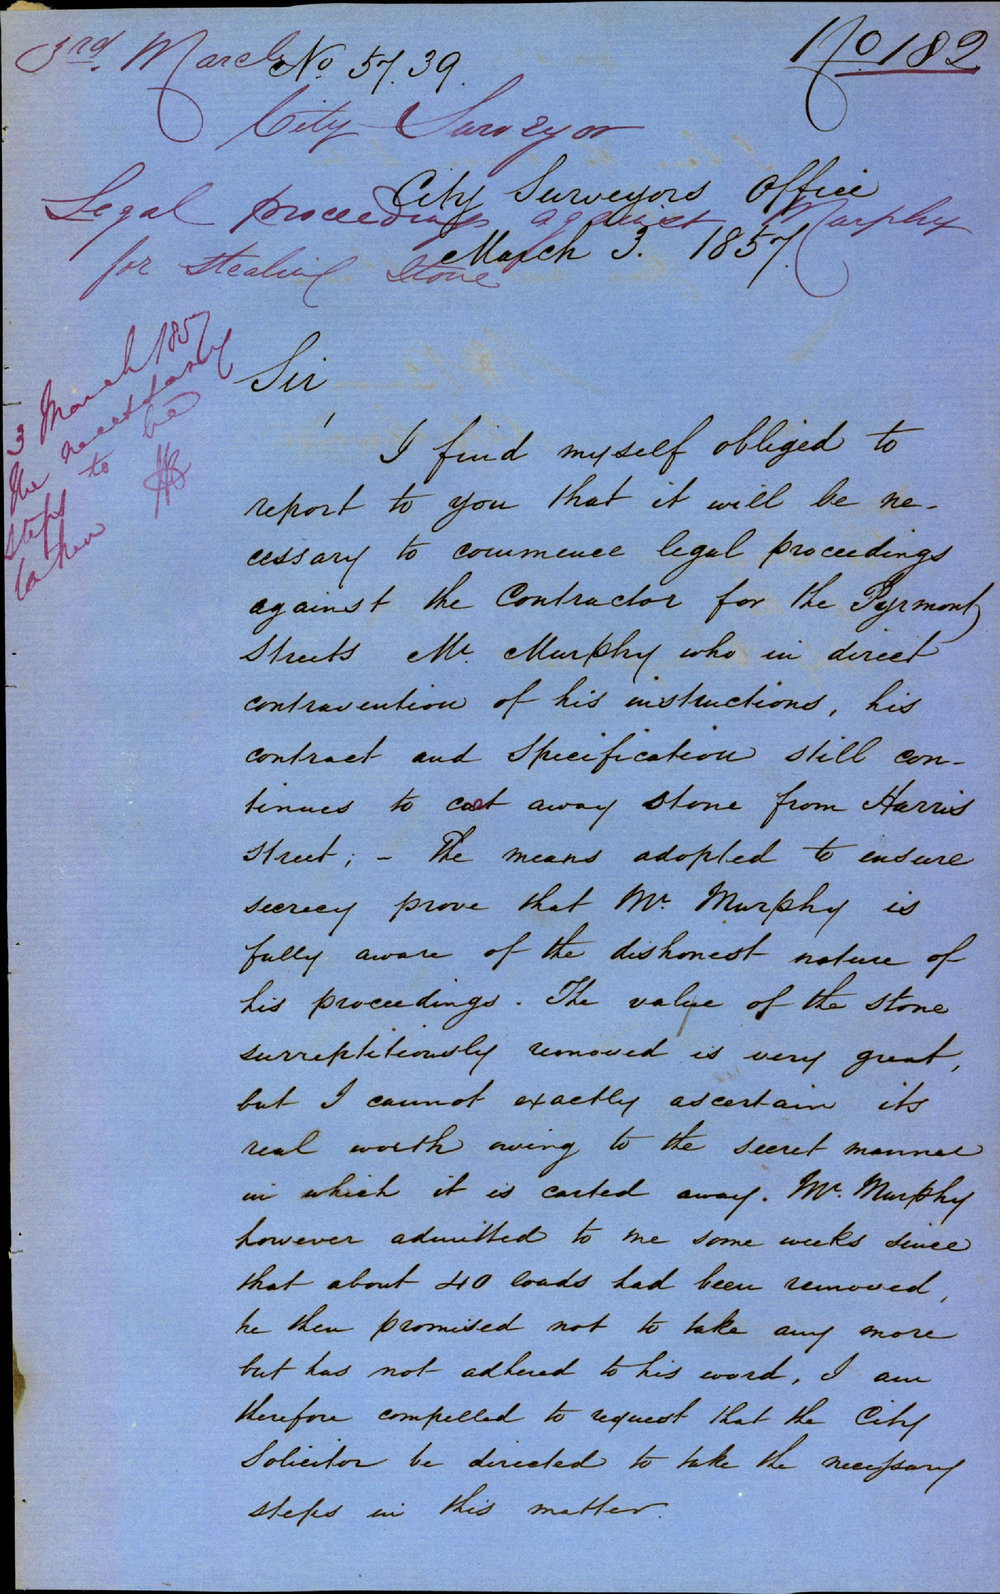 3rd. March
No 57.39.
No. 182
City Surveyor
City Surveyors Office
Legal proceedings against Murphy
March 3. 1857.
for stealing Stone
3 March 1857
The necessary
steps to be
taken
Sir,
I find myself obliged to
report to you that it will be ne-
cessary to commence legal proceedings
against the Contractor for the Pyrmont
Streets Mr. Murphy who in direct
contravention of his instructions, his
contract and Specification still con-
tinues to cart away stone from Harris
Street; - The means adopted to ensure
secrecy prove that Mr. Murphy is
fully aware of the dishonest nature of
his proceedings. The value of the stone
surreptitiously removed is very great,
but I cannot exactly ascertain its
real worth owing to the secret manner
in which it is carted away. Mr. Murphy
however admitted to me some weeks since
that about 40 loads had been removed,
he then promised not to take any more
but has not adhered to his word, I am
therefore compelled to request that the City
Solicitor be directed to take the necessary
steps in this matter.